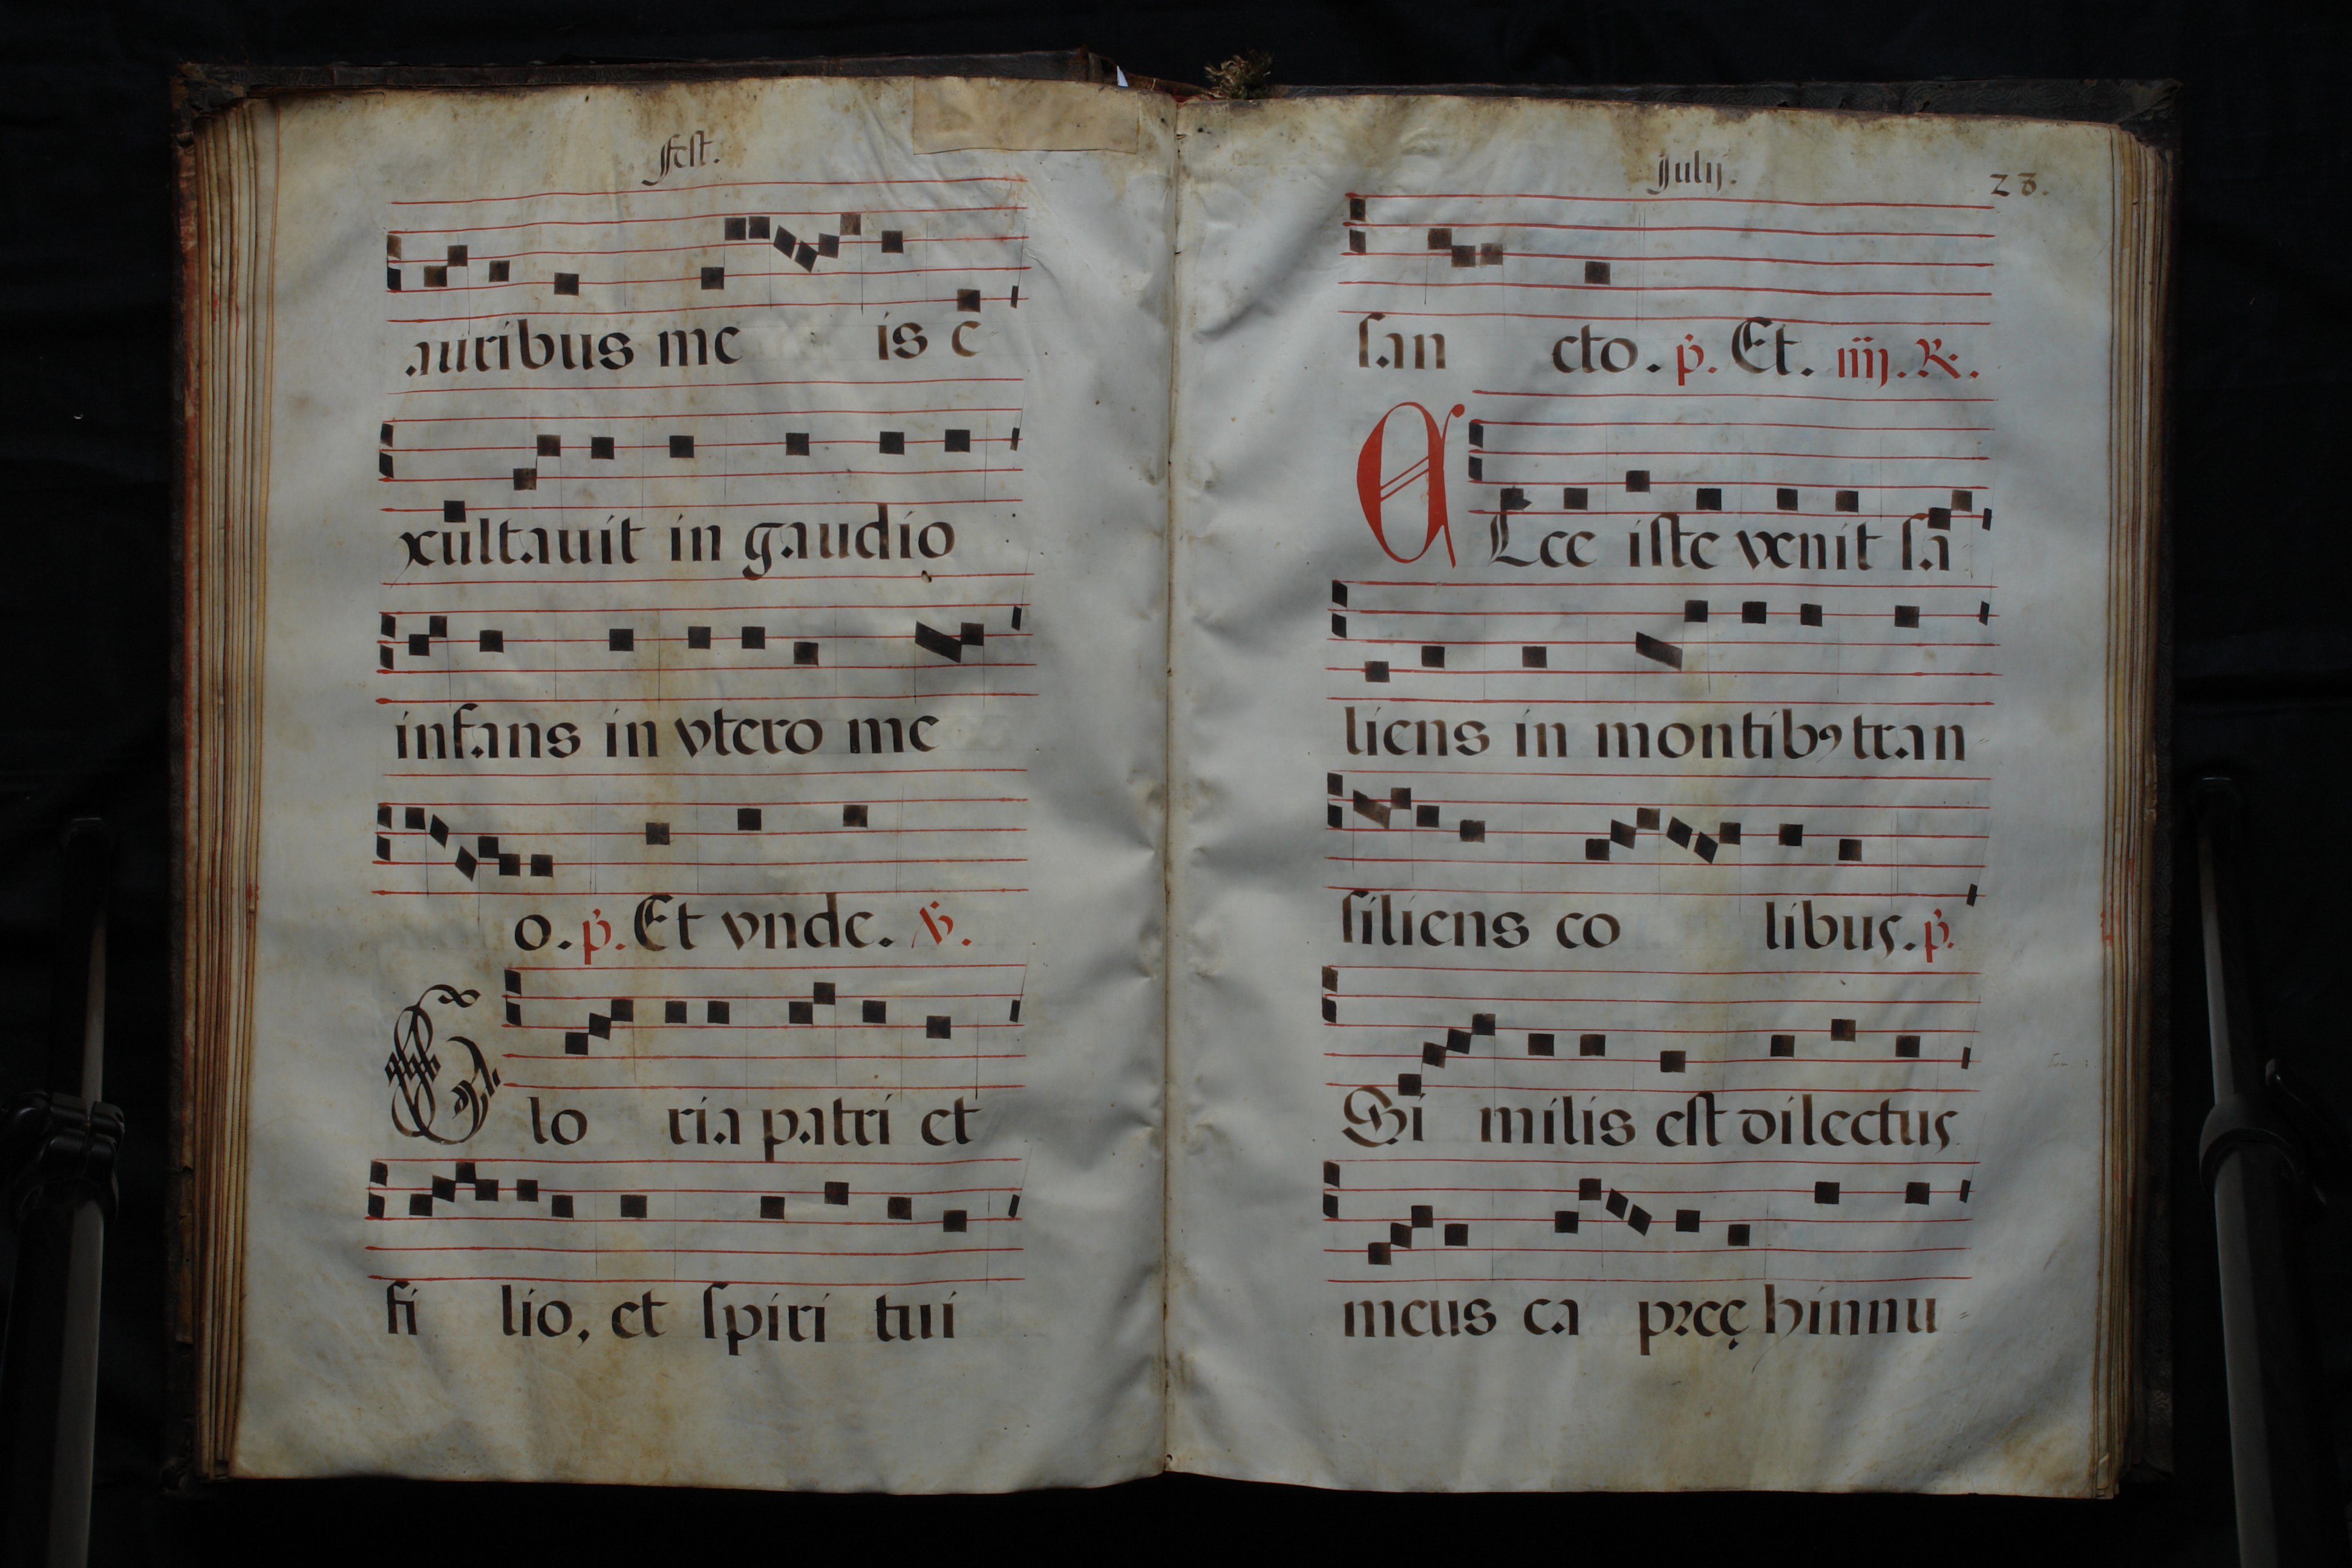 Fest.
auribus me is e
xultauit in gaudio
infans in vtero me
o. p. Et vnde. V.
Glo ria patri et
fi lio, et spiri tui
Julij. 28.
san cto. p. Et. iiij. R.
Ecce iste venit sa
liens in montibꝰ tran
siliens co libus. p.
Si milis est dilectus
meus ca preę hinnu